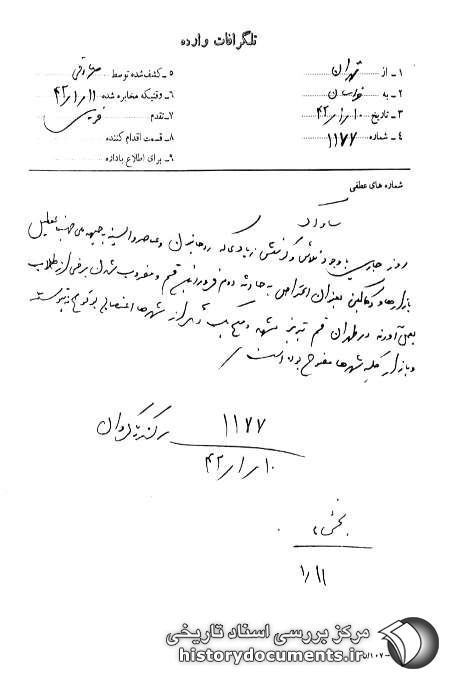 تلگرافات وارده
۱ـ از تهران
۲ـ به خراسان
۳ـ تاریخ ۱۰ر۱ر۴۲
۴ـ شماره ۱۱۷۷
۵ـ کشف‌شده توسط
۶ـ وقتیکه مخابره شده ۱۱ر۱ر۴۲
۷ـ تقدم
۸ـ قسمت اقدام کننده
۹ـ برای اطلاع باداره
شماره های عطفی
ساواک
روز جاری با وجود تلاش و کوشش زیادی که روحانیون و عناصر وابسته به جبهه ملی تعطیل
بازارها و دکاکین بعنوان اعتراض به حادثه دوم فروردین قم و مضروب شدن برخی از طلاب
بعمل آوردند در طهران قم تبریز مشهد و هیچ یک از شهرها اعتصابی بوقوع نپیوسته
و بازار کلیه شهرها مفتوح بوده است
۱۱۷۷
۱۰ر۱ر۴۲
بخش ۳
۱ر۱۱
مرکز بررسی اسناد تاریخی
historydocuments.ir